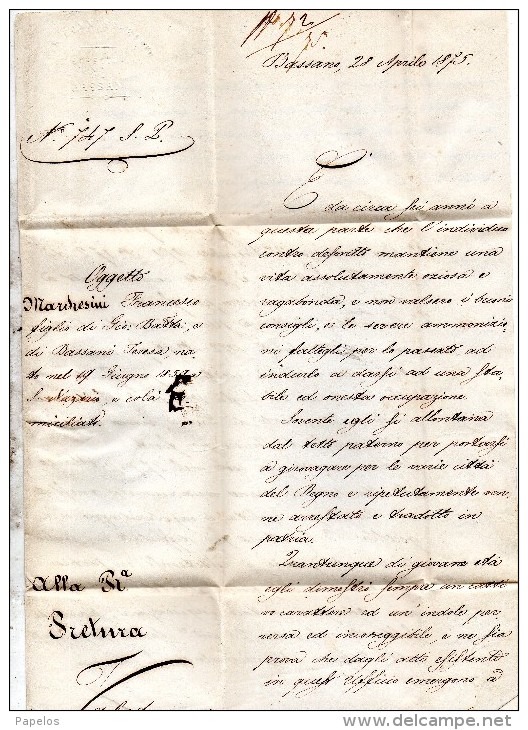 No 72
75.
Bassano, 28 Aprile 1875.
No 747 S. P.
E da circa sei anni a
questa parte che l'individuo
contro descritto mantiene una
vita assolutamente oziosa e
vagabonda, e non valsero i buoni
consigli, e le severe ammonizio,
ni fattegli per lo passato ad
indurlo a darsi ad una sta,
bile ed onesta occupazione.
Sovente egli si allontana
dal tetto paterno per portarsi
a girovagare per le varie città
del Regno e ripetutamente ven,
ne arrestato e tradotto in
patria.
Quantunque di giovane età
egli dimostrò sempre un catti
vo carattere ed un'indole per
versa ed incorreggibile, e ne sia
prova che dagli atti esistenti
in quest' Ufficio emergono a
Oggetto
Marchesini Francesco
figlio di Gio: Batta, e
di Bassani Teresa na
to nel 19 Giugno
S. Nazario e colà
miciliato.
Alla Ra
Pretura
Papelos
www.delcampe.net